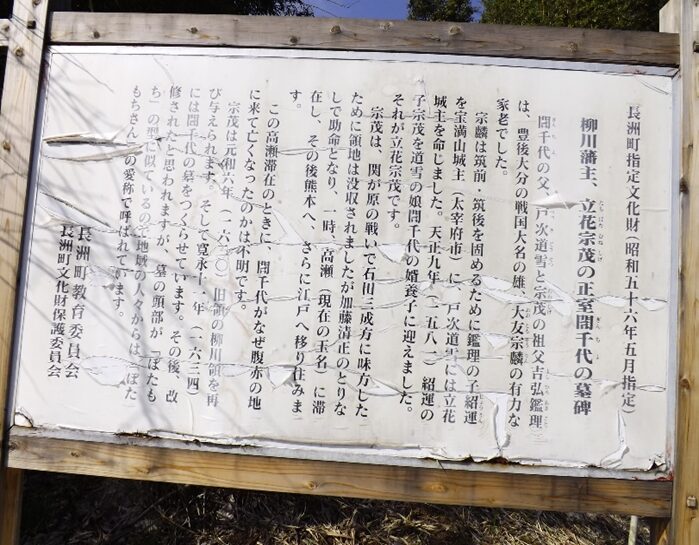 長洲町指定文化財(昭和五十六年五月指定)
柳川藩主、立花宗茂の正室誾千代の墓碑
誾千代の父、戸次道雪と宗茂の祖父吉弘鑑理
は、豊後大分の戦国大名の雄、大友宗麟の有力な
家老でした。
宗麟は筑前・筑後を固めるために鑑理の子紹運
を宝満山城主(太宰府市)に、戸次道雪には立花
城主を命じました。天正九年(一五八一)紹運の
子宗茂を道雪の娘誾千代の婿養子に迎えました。
それが立花宗茂です。
宗茂は、関が原の戦いで石田三成方に味方した
ために領地は没収されましたが加藤清正のとりな
しで助命となり、一時、高瀬(現在の玉名)に滞
在し、その後熊本へ、さらに江戸へ移り住みま
す。
この高瀬滞在のときに、誾千代がなぜ腹赤の地
に来て亡くなったのかは不明です。
宗茂は元和六年(一六二〇)旧領の柳川領を再
び与えられます。そして寛永十一年(一六三四)
には誾千代の墓をつくらせています。その後、改
修されたと思われますが、墓の頭部が「ぼたも
ち」の型に似ているので地域の人々からは、「ぼた
もちさん」の愛称で呼ばれています。
長洲町教育委員会
長洲町文化財保護委員会